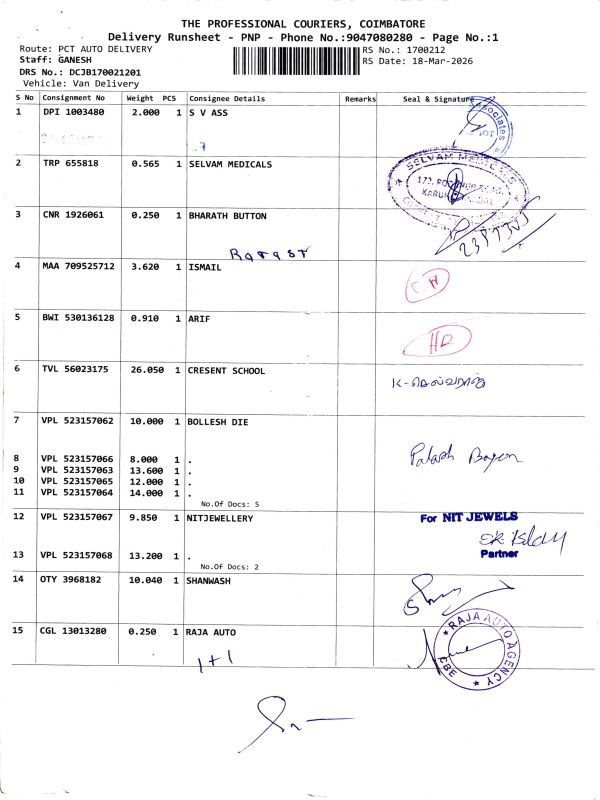 THE PROFESSIONAL COURIERS, COIMBATORE
Delivery Runsheet - PNP - Phone No.:9047080280 - Page No.:1
Route: PCT AUTO DELIVERY
RS No.: 1700212
Staff: GANESH
RS Date: 18-Mar-2026
DRS No.: DCJB170021201
Vehicle: Van Delivery
S No Consignment No Weight PCS Consignee Details Remarks Seal & Signature
1 DPI 1003480 2.000 1 S V ASS
2 TRP 655818 0.565 1 SELVAM MEDICALS
SELVAM MEDICALS
3 CNR 1926061 0.250 1 BHARATH BUTTON
4 MAA 709525712 3.620 1 ISMAIL
5 BWI 530136128 0.910 1 ARIF
6 TVL 56023175 26.050 1 CRESENT SCHOOL
K-செல்வராஜ்
7 VPL 523157062 10.000 1 BOLLESH DIE
8 VPL 523157066 8.000 1 .
9 VPL 523157063 13.600 1 .
10 VPL 523157065 12.000 1 .
11 VPL 523157064 14.000 1 .
No.Of Docs: 5
12 VPL 523157067 9.850 1 NITJEWELLERY
For NIT JEWELS
Partner
13 VPL 523157068 13.200 1 .
No.Of Docs: 2
14 OTY 3968182 10.040 1 SHANWASH
15 CGL 13013280 0.250 1 RAJA AUTO
RAJA AUTO AGENCY
CBE
1+1